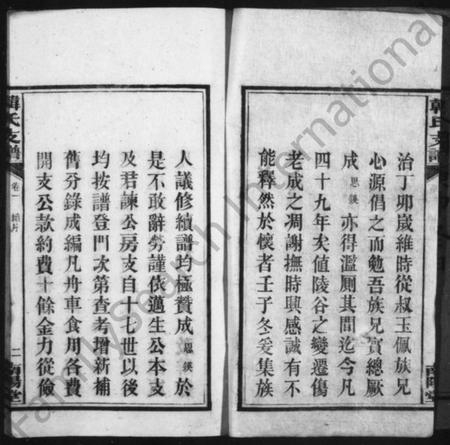 治丁卯歲維時從叔玉佩族兄
心源倡之而勉吾族兄實總厥
成恩鍈亦得濫厠其間迄今凡
四十九年矣値陵谷之變遷傷
老成之凋謝撫時興感誠有不
能釋然於懷者壬子冬爰集族
韓氏支譜
南陽堂
韓氏支譜
卷一
二
南陽堂
人議修續譜均極贊成恩鍈於
是不敢辭勞謹依邁生公本支
及君諫公房支自十七世以後
均按譜登門次第查考增新補
舊分錄成編凡舟車食用各費
開支公款約費十餘金力從儉
FamilySearch International